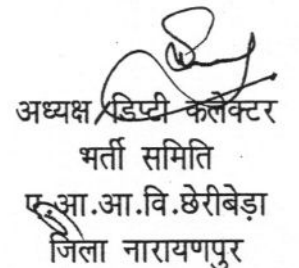 अध्यक्ष/डिप्टी कलेक्टर
भर्ती समिति
ए.आ.आ.वि.छेरीबेड़ा
जिला नारायणपुर